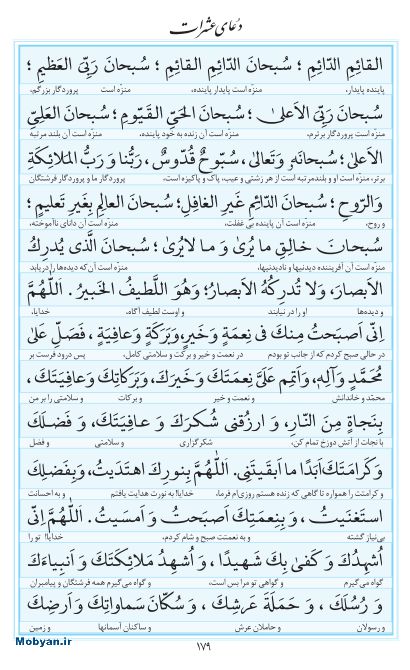 دعای عشرات
القائِمِ الدّائِمِ ؛ سُبحانَ الدّائِمِ القائِمِ ؛ سُبحانَ رَبِّیَ العَظیمِ ؛
پاینده پایدار، منزّه است پایدار پاینده، منزّه است پروردگار بزرگم،
سُبحانَ رَبِّیَ الاَعلیٰ ؛ سُبحانَ الحَیِّ القَیّومِ ؛ سُبحانَ العَلِیِّ
منزّه است پروردگار برترم، منزّه است آن زنده به خود پاینده، منزّه است آن بلند مرتبه
الاَعلیٰ ؛ سُبحانَهُ وَتَعالیٰ ، سُبّوحٌ قُدّوسٌ ، رَبُّنا وَ رَبُّ المَلائِکَةِ
برتر، منزّه است او و بلندمرتبه است از هر زشتی و عیب، پاک و پاکیزه است، پروردگار ما و پروردگار فرشتگان
وَالرّوحِ ؛ سُبحانَ الدّائِمِ غَیرِ الغافِلِ؛ سُبحانَ العالِمِ بِغَیرِ تَعلیمٍ ؛
و روح، منزّه است آن پاینده بی غفلت، منزّه است آن دانای ناآموخته،
سُبحانَ خالِقِ ما یُریٰ وَ ما لا یُریٰ ؛ سُبحانَ الَّذی یُدرِكُ
منزّه است آن آفریننده دیدنیها و نادیدنیها، منزّه است آن که دیده‌ها را دریابد
الاَبصارَ، وَلا تُدرِکُهُ الاَبصارُ؛ وَهُوَ اللَّطیفُ الخَبیرُ . اَللّٰهُمَّ
و دیده‌ها او را در نیابند و اوست لطیف آگاه، خدایا،
اِنّی اَصبَحتُ مِنكَ فی نِعمَةٍ وَ خَیرٍ وَ بَرَکَةٍ وَ عافِیَةٍ ، فَصَلِّ عَلیٰ
در حالی صبح کردم که از جانب تو بودم در نعمت و خیر و برکت و سلامتی کامل، پس درود فرست بر
مُحَمَّدٍ وَآلِهِ، وَاَتمِم عَلَیَّ نِعمَتَكَ وَخَیرَكَ، وَبَرَکاتِكَ وَعافِیَتَكَ ،
محمّد و خاندانش و نعمت و خیر و برکات و سلامتی را بر من
بِنَجاةٍ مِنَ النّارِ، وَ ارزُقنی شُکرَكَ وَ عافِیَتَكَ، وَ فَضلَكَ
با نجات از آتش دوزخ تمام کن، شکرگزاری و سلامتی و فضل
وَ کَرامَتَكَ اَبَدًا ما اَبقَیتَنی. اَللّٰهُمَّ بِنورِكَ اهتَدَیتُ، وَبِفَضلِكَ
و کرامتت را همواره تا گاهی که زنده هستم روزی‌ام فرما، خدایا! به نورت هدایت یافتم و به احسانت
استَغنَیتُ ، وَ بِنِعمَتِكَ اَصبَحتُ وَ اَمسَیتُ . اَللّٰهُمَّ اِنّی
بی‌نیاز گشته و به نعمتت صبح و شام کردم، خدایا! تو را
اُشهِدُكَ وَ کَفیٰ بِكَ شَهیدًا ، وَ اُشهِدُ مَلائِکَتَكَ وَ اَنبِیاءَكَ
گواه می‌گیرم و گواهی تو مرا بس است، و گواه می‌گیرم همه فرشتگان و پیامبران
وَ رُسُلَكَ ، وَ حَمَلَةَ عَرشِكَ ، وَ سُکّانَ سَماواتِكَ وَ اَرضِكَ
و رسولان و حاملان عرش و ساکنان آسمانها و زمین
۱۷۹
Mobyan.ir